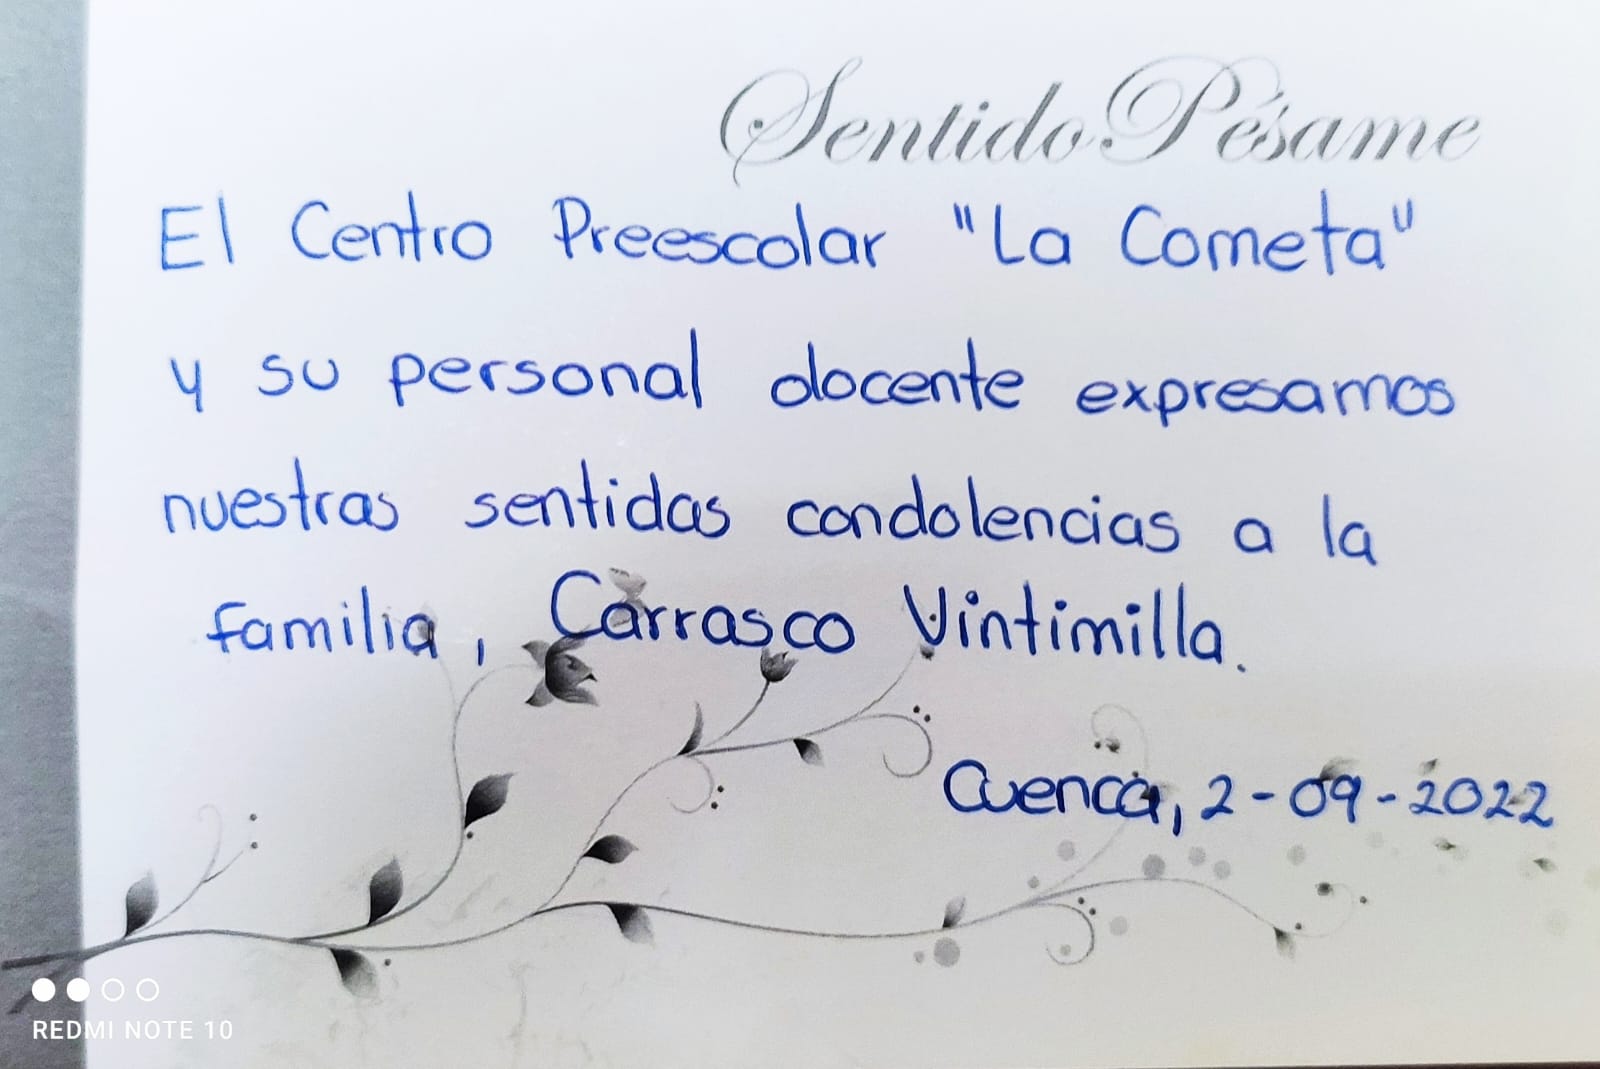 Sentido Pésame
El Centro Preescolar "La Cometa"
y su personal docente expresamos
nuestras sentidas condolencias a la
familia, Carrasco Vintimilla.
Cuenca, 2-09-2022
REDMI NOTE 10